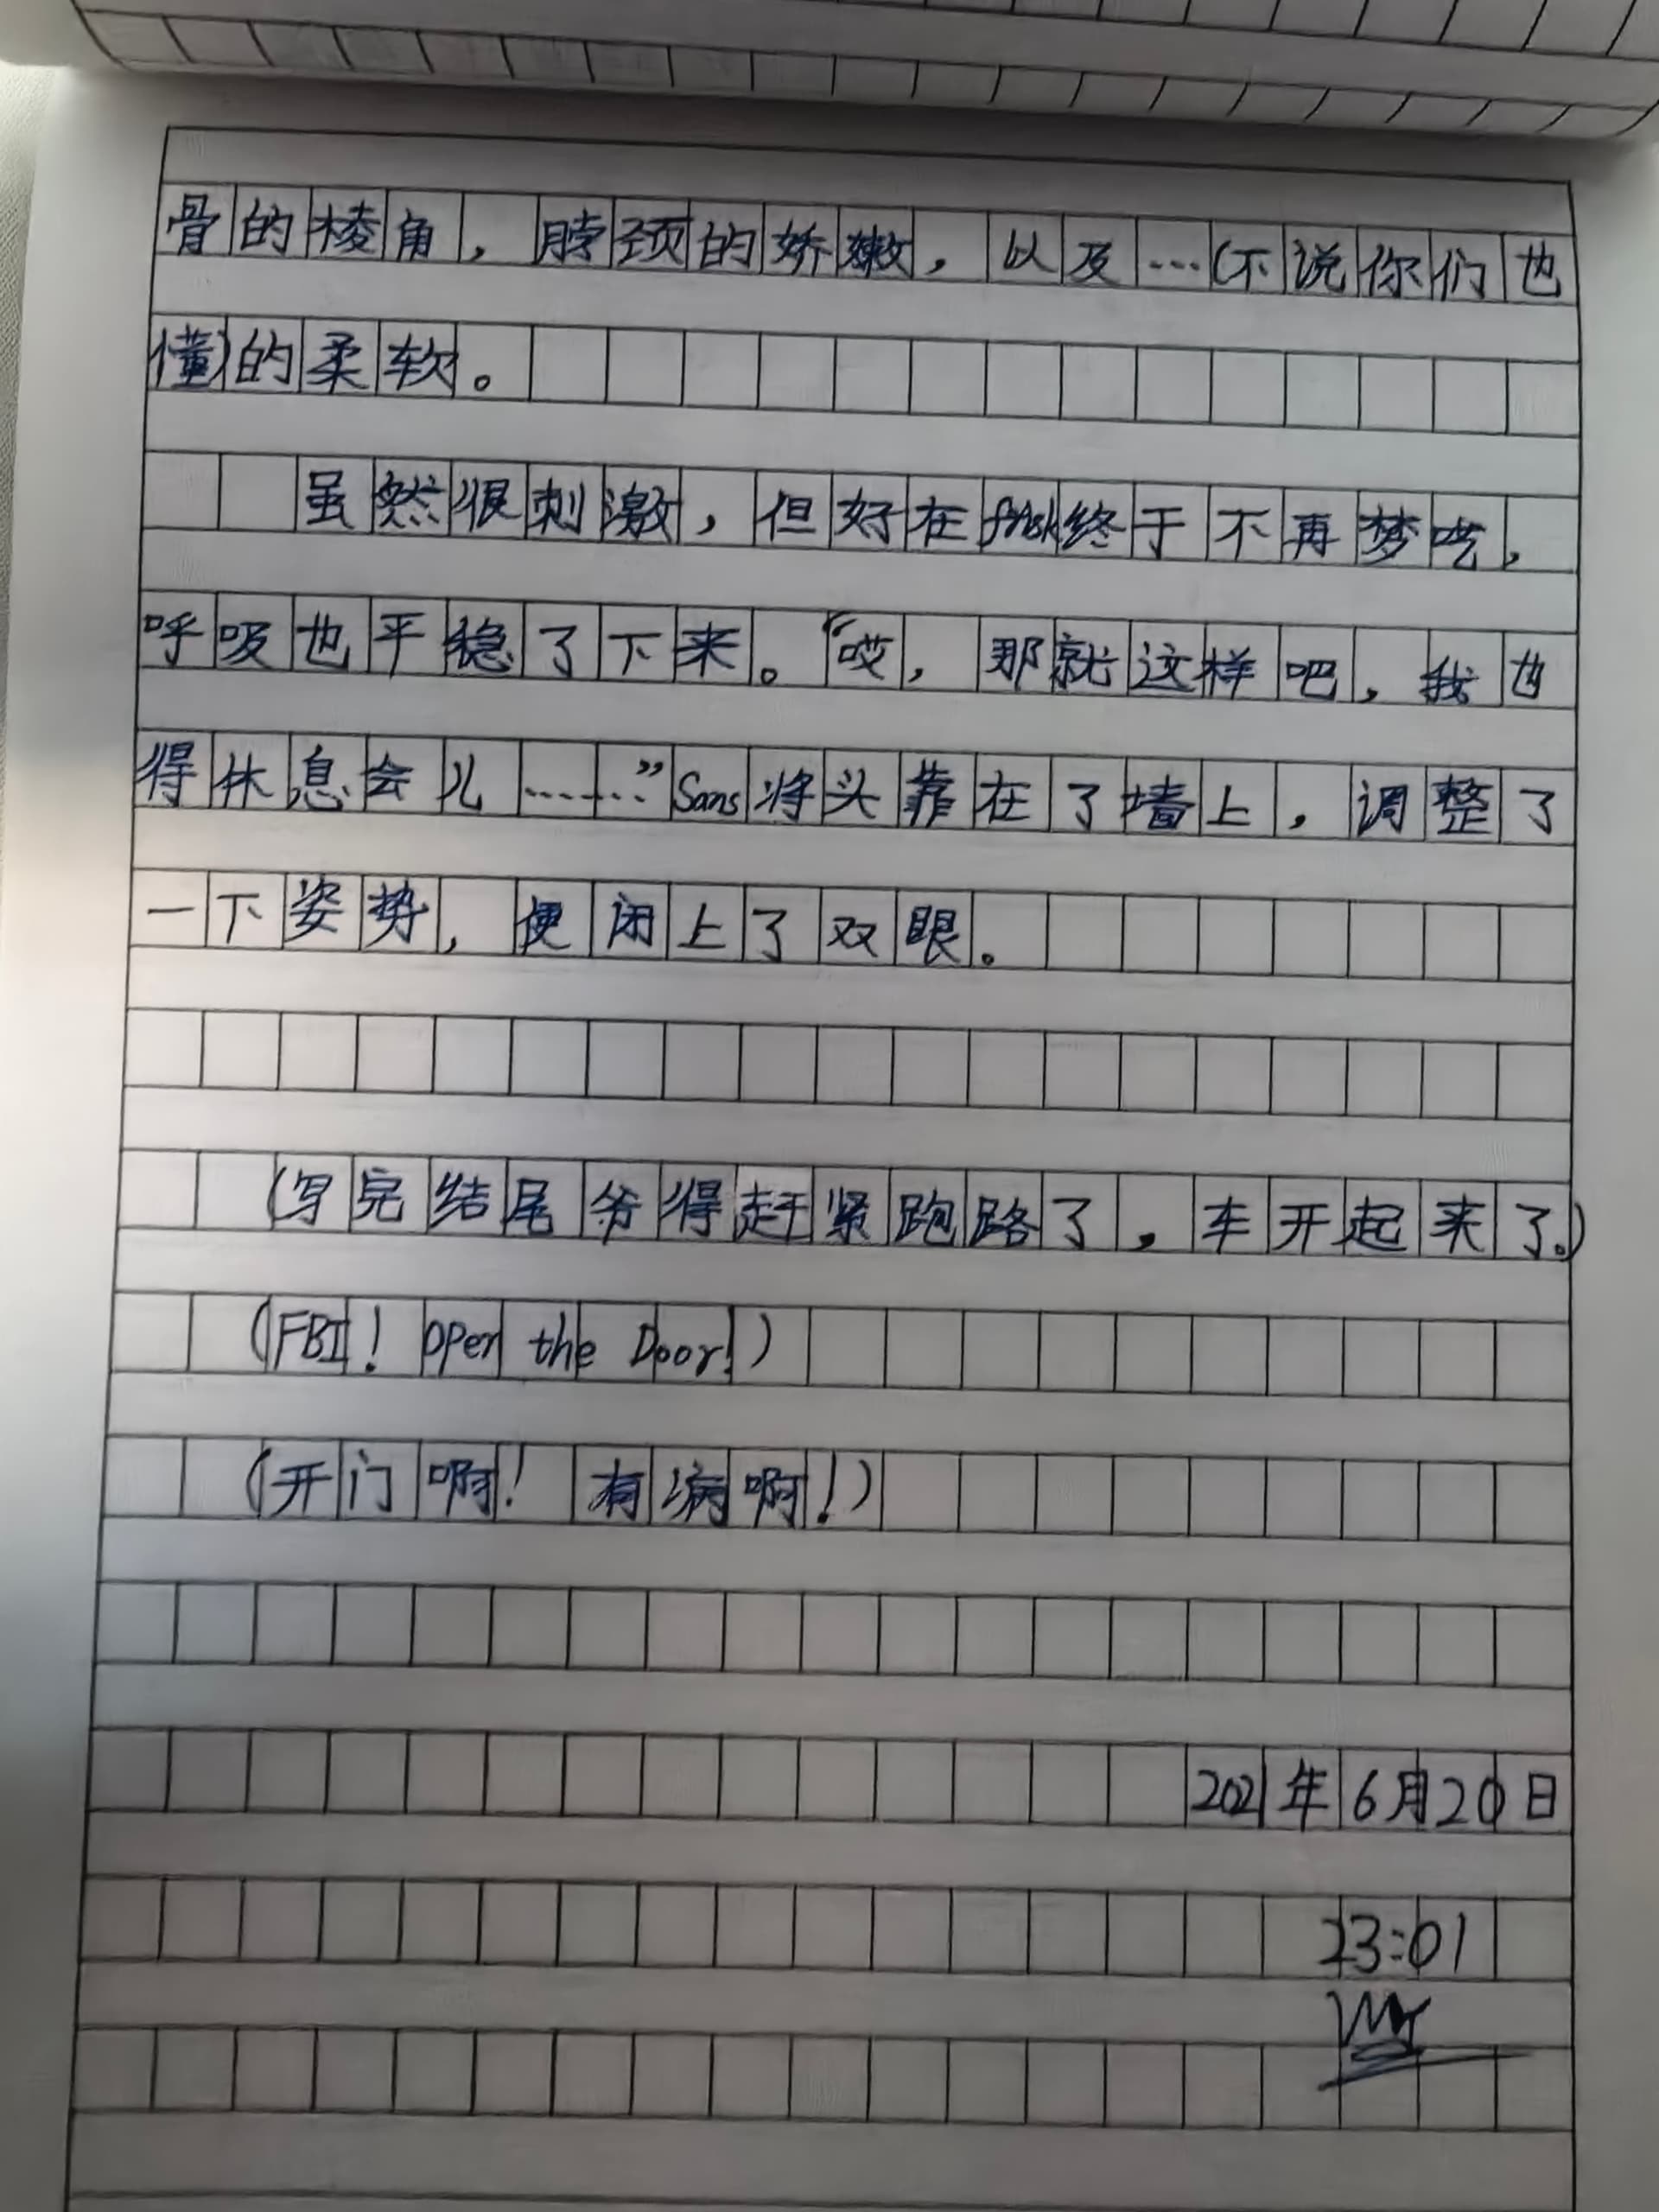 骨的棱角，脖颈的娇嫩，以及…(不说你们也
懂)的柔软。
虽然很刺激，但好在frisk终于不再梦呓，
呼吸也平稳了下来。“哎，那就这样吧，我也
得休息会儿……”Sans将头靠在了墙上，调整了
一下姿势，便闭上了双眼。
(写完结尾爷得赶紧跑路了，车开起来了。)
(FBI！Open the Door！)
(开门啊！有病啊！)
2021年6月20日
23:01